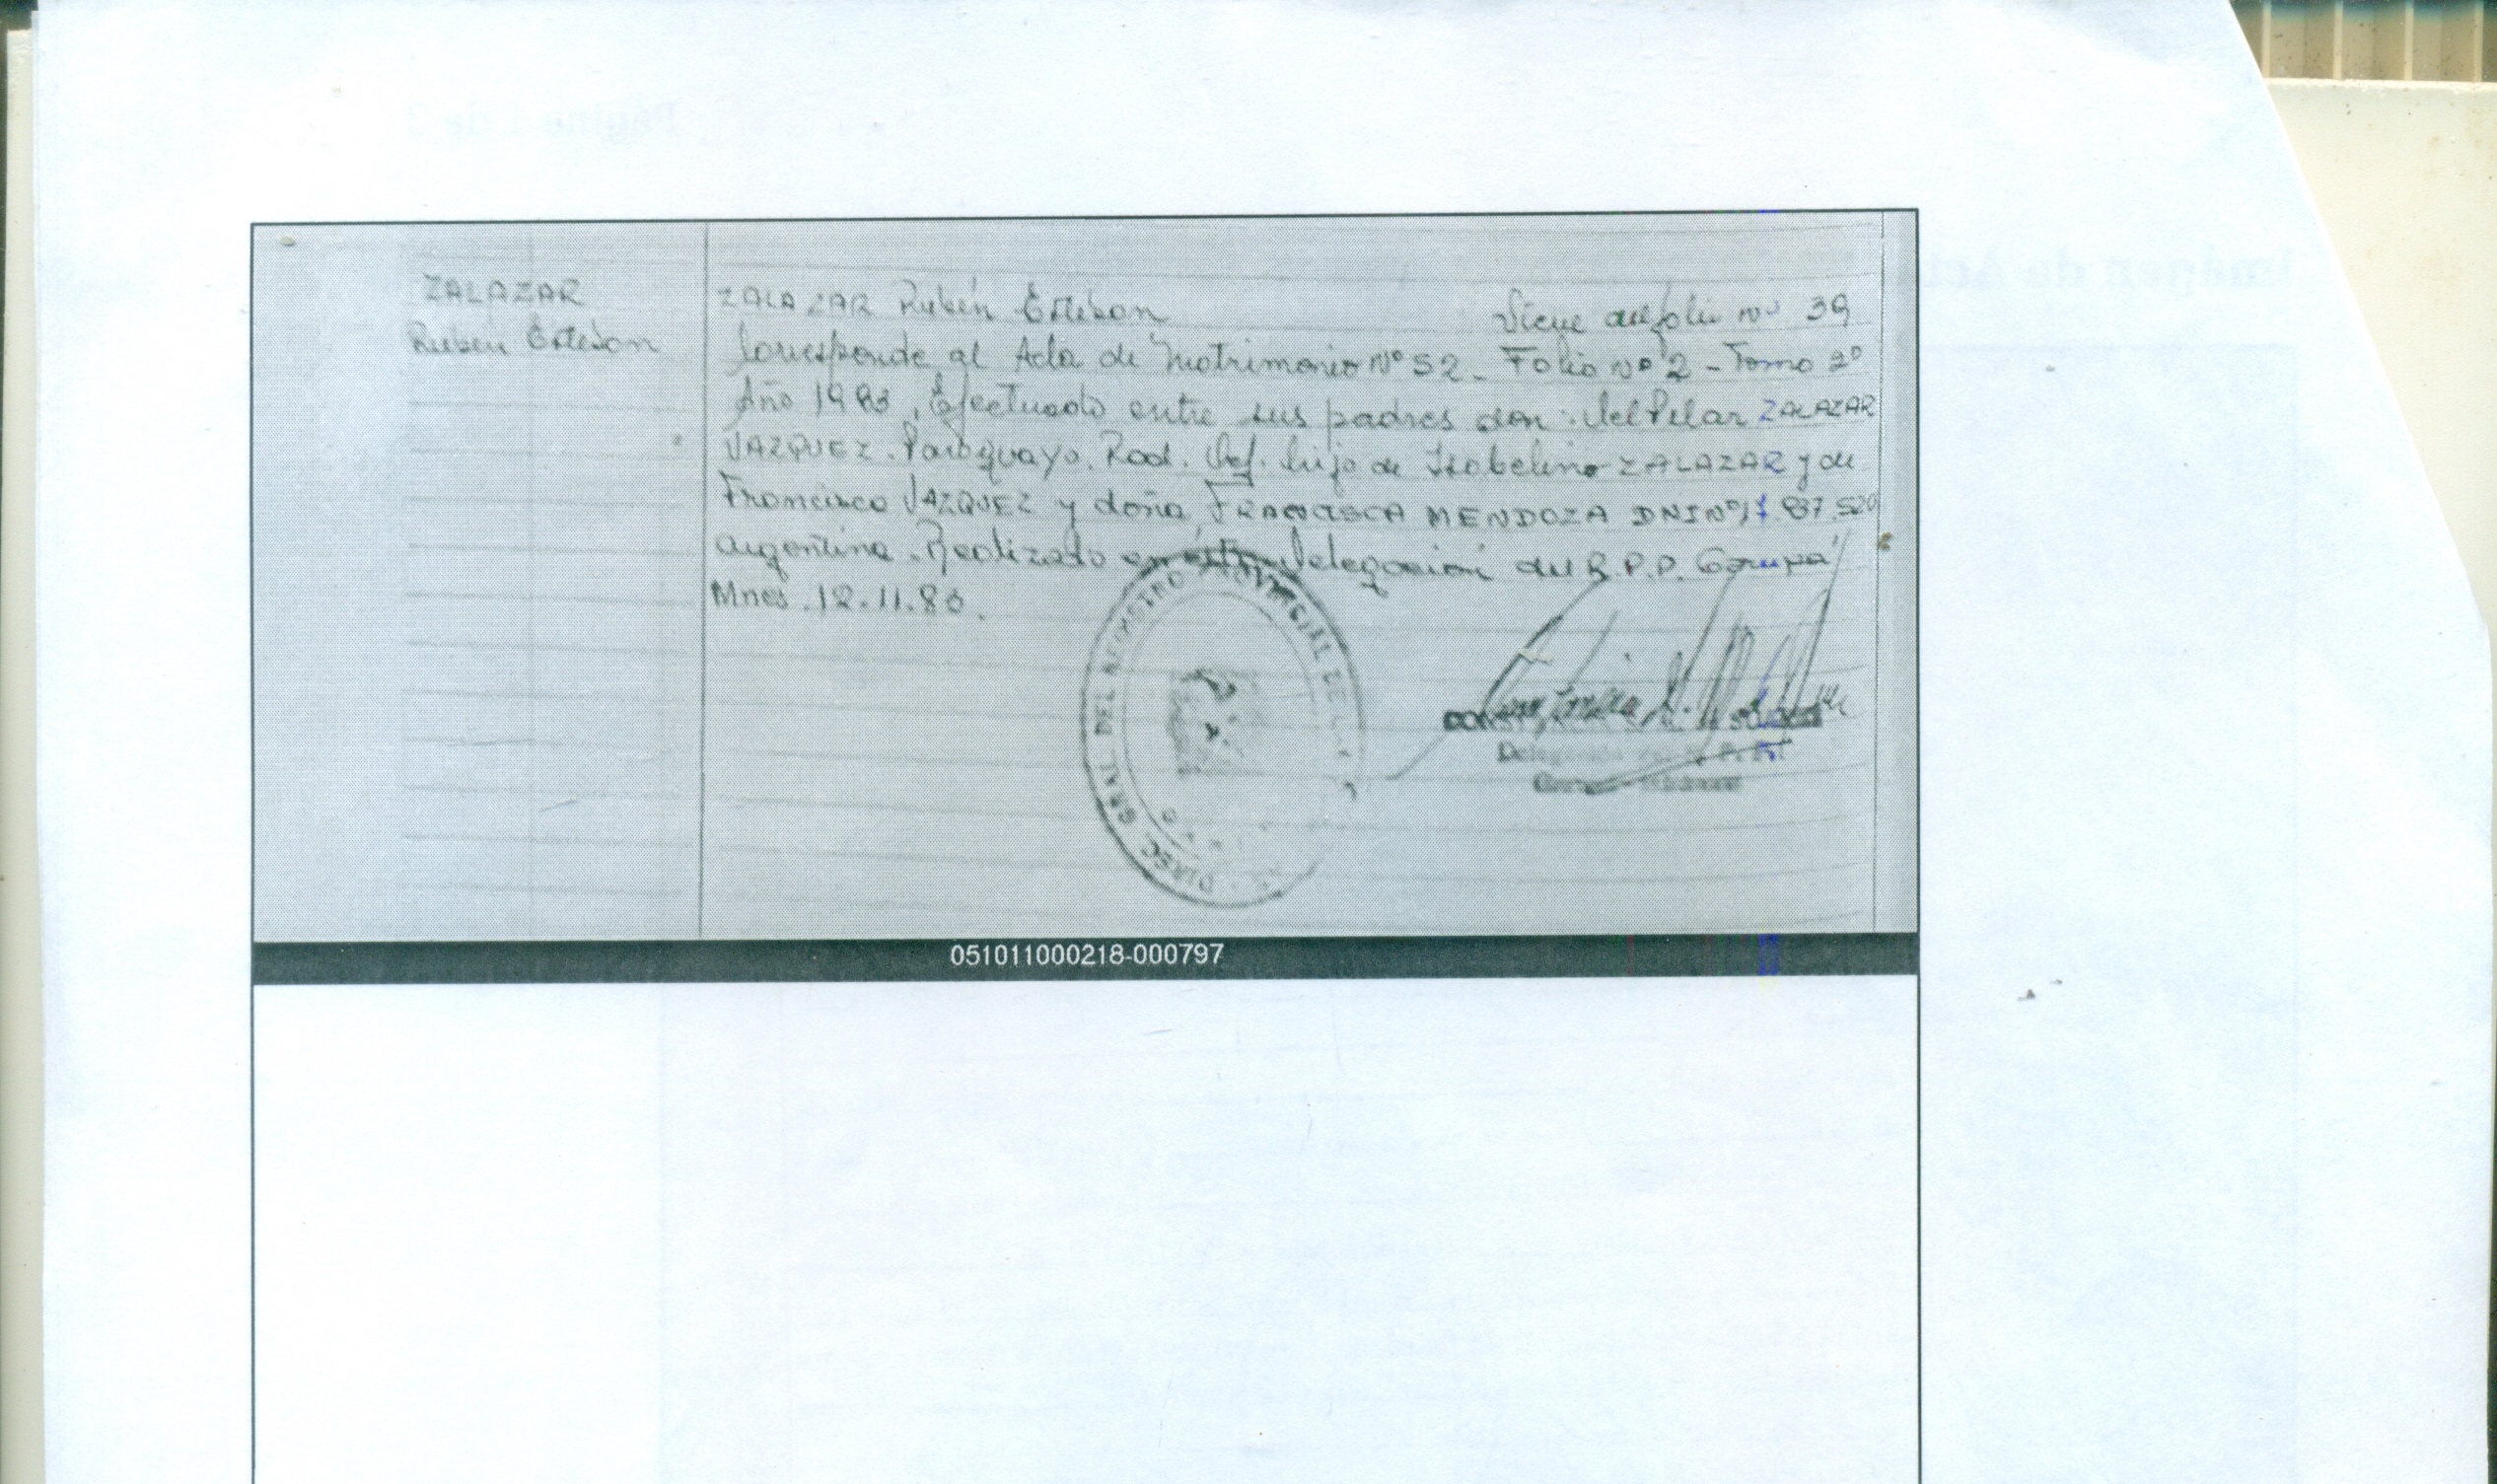 ZALAZAR
Rubén Esteban
ZALAZAR Rubén Esteban Viene del folio nº 39
Corresponde al Acta de Matrimonio Nº 52 - Folio nº 2 - Tomo 2º
Año 1983. Efectuado entre sus padres don: Del Pilar ZALAZAR
VAZQUEZ. Paraguayo. Rad. Def. hijo de Isabelino ZALAZAR y de
Francisca VAZQUEZ y doña FRANCISCA MENDOZA DNI Nº 837.520
argentina. Realizado en esta Delegación del R.P.P. Garupá
Mnes. 12.11.83.
DIREC. GRAL DEL REGISTRO PROVINCIAL DE
Delegación
051011000218-000797